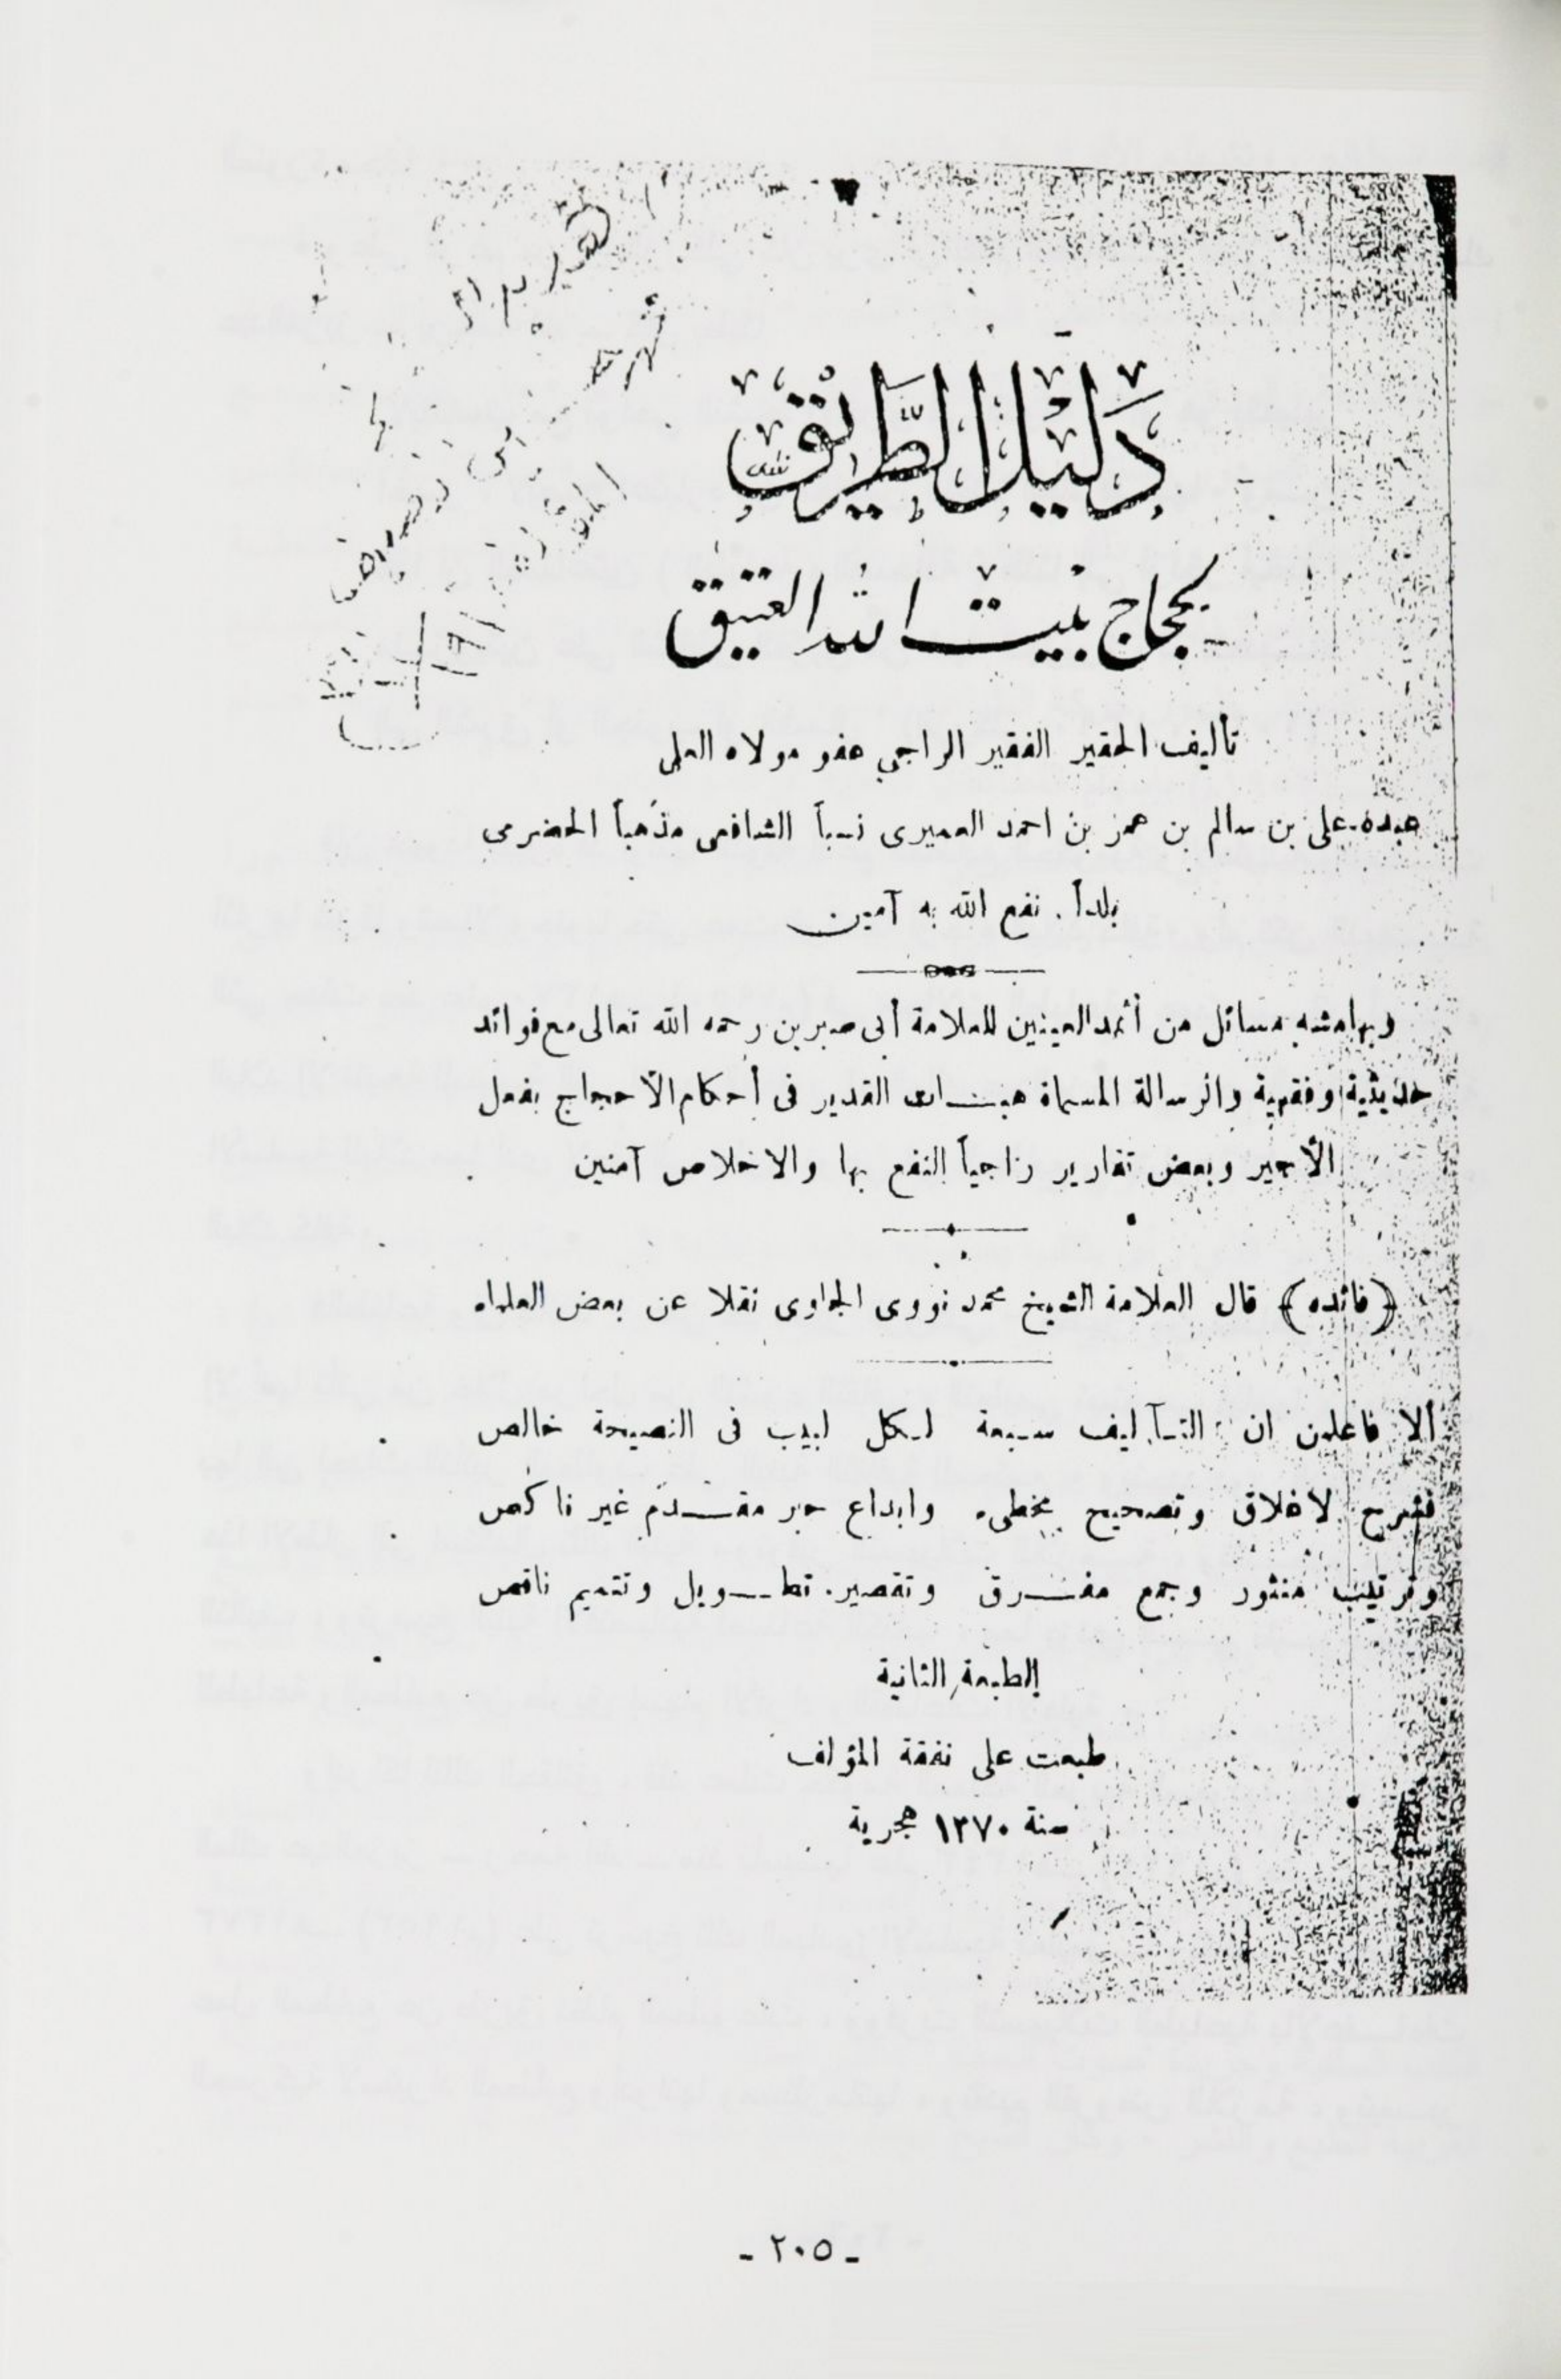 دَلِيْلُ الطَّرِيْقِ
لحجاج بيت الله العتيق
تأليف الحقير الفقير الراجي عفو مولاه العلي
عبده علي بن سالم بن عمر بن احمد العميرى نسباً الشافعي مذهباً الحضرمي
بلداً . نفع الله به آمين
وبهامشه مسائل من أثمد العينين للعلامة أبى صبرين رحمه الله تعالى مع فوائد
حديثية وفقهية والرسالة المسماة هبات القدير فى أحكام الاحجاج بفعل
الأجير وبعض تقارير راجياً النفع بها والاخلاص آمنين
﴿فائده﴾ قال العلامة الشيخ محمد نووى الجاوى نقلا عن بعض العلماء
ألا فاعلمن ان التآليف سبعة لكل لبيب فى النصيحة خالص
فشرح لاغلاق وتصحيح مخطىء وابداع حبر مقدم غير ناكص
وترتيب منثور وجمع مفرق وتقصير تطويل وتتميم ناقص
الطبعة الثانية
طبعت على نفقة المؤلف
سنة ١٣٧٠ هجرية
- ٢٠٥ -